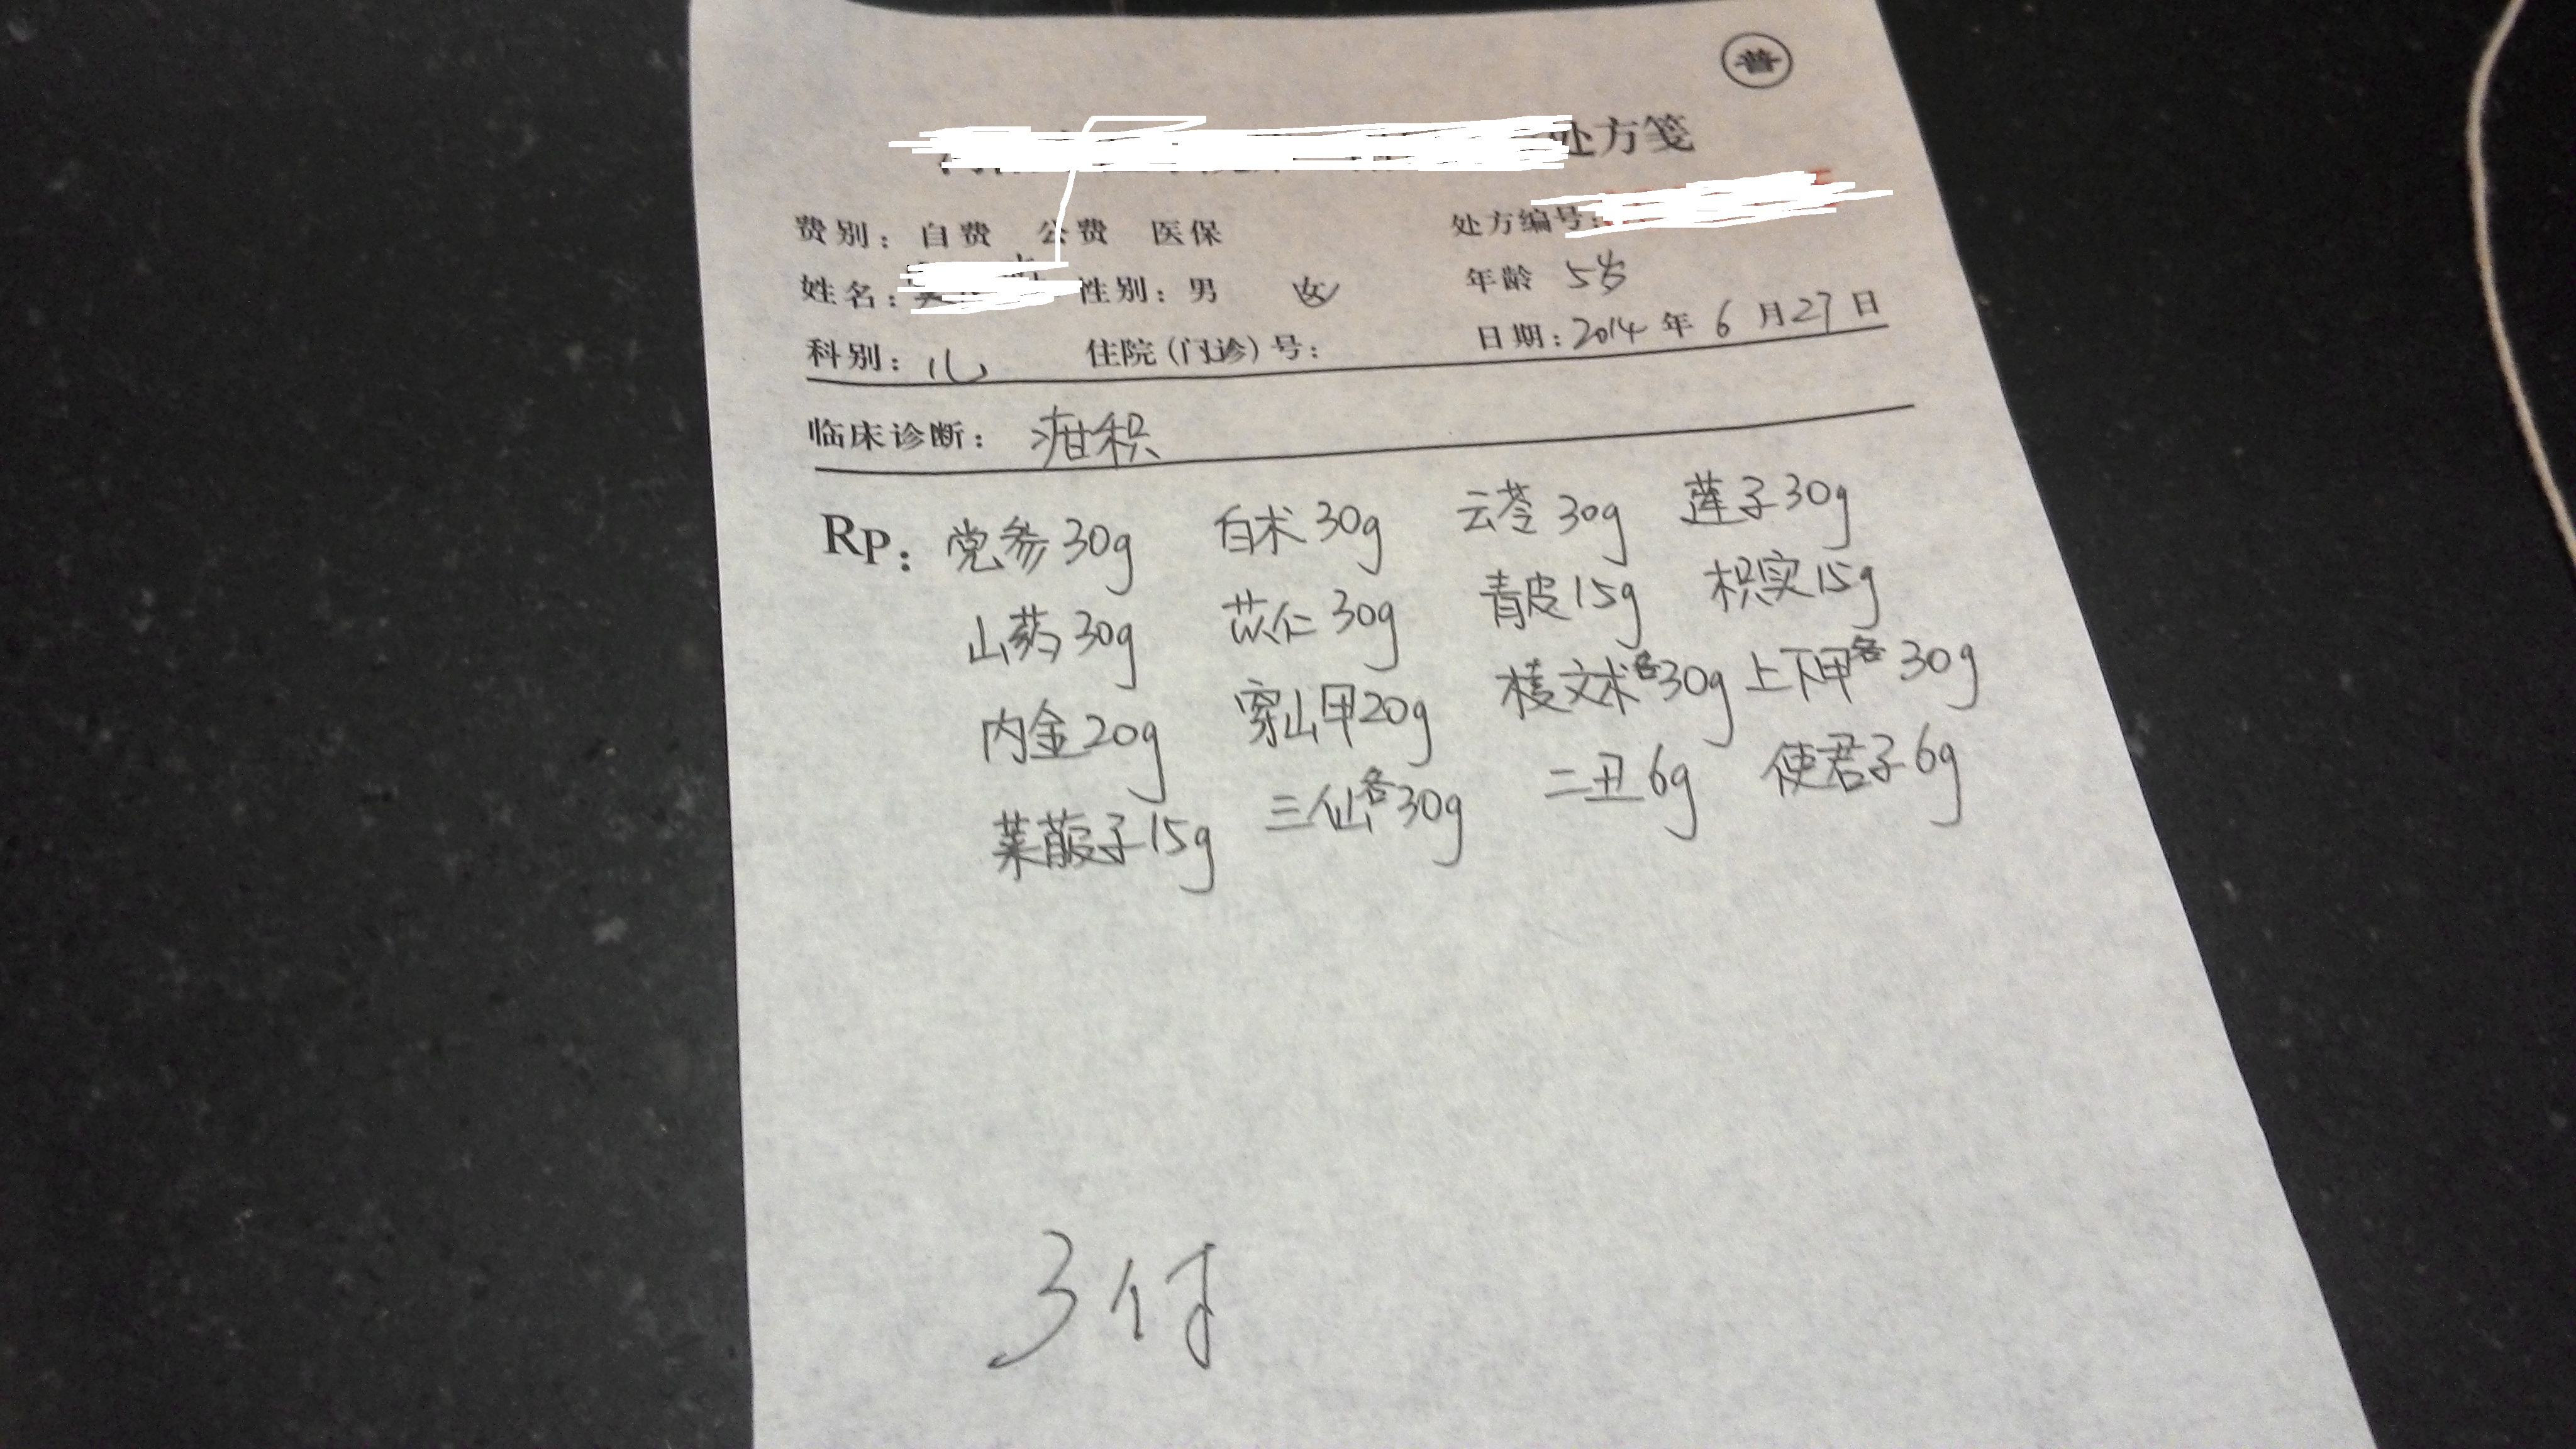 普
处方笺
费别：自费 公费 医保 处方编号：
姓名： 性别：男 女 年龄 5岁
科别：儿 住院（门诊）号： 日期：2014年6月27日
临床诊断：疳积
Rp：党参30g 白术30g 云苓30g 莲子30g
山药30g 苡仁30g 青皮15g 枳实15g
内金20g 穿山甲20g 棱文术各30g 上下甲各30g
莱菔子15g 三仙各30g 二丑6g 使君子6g
3付